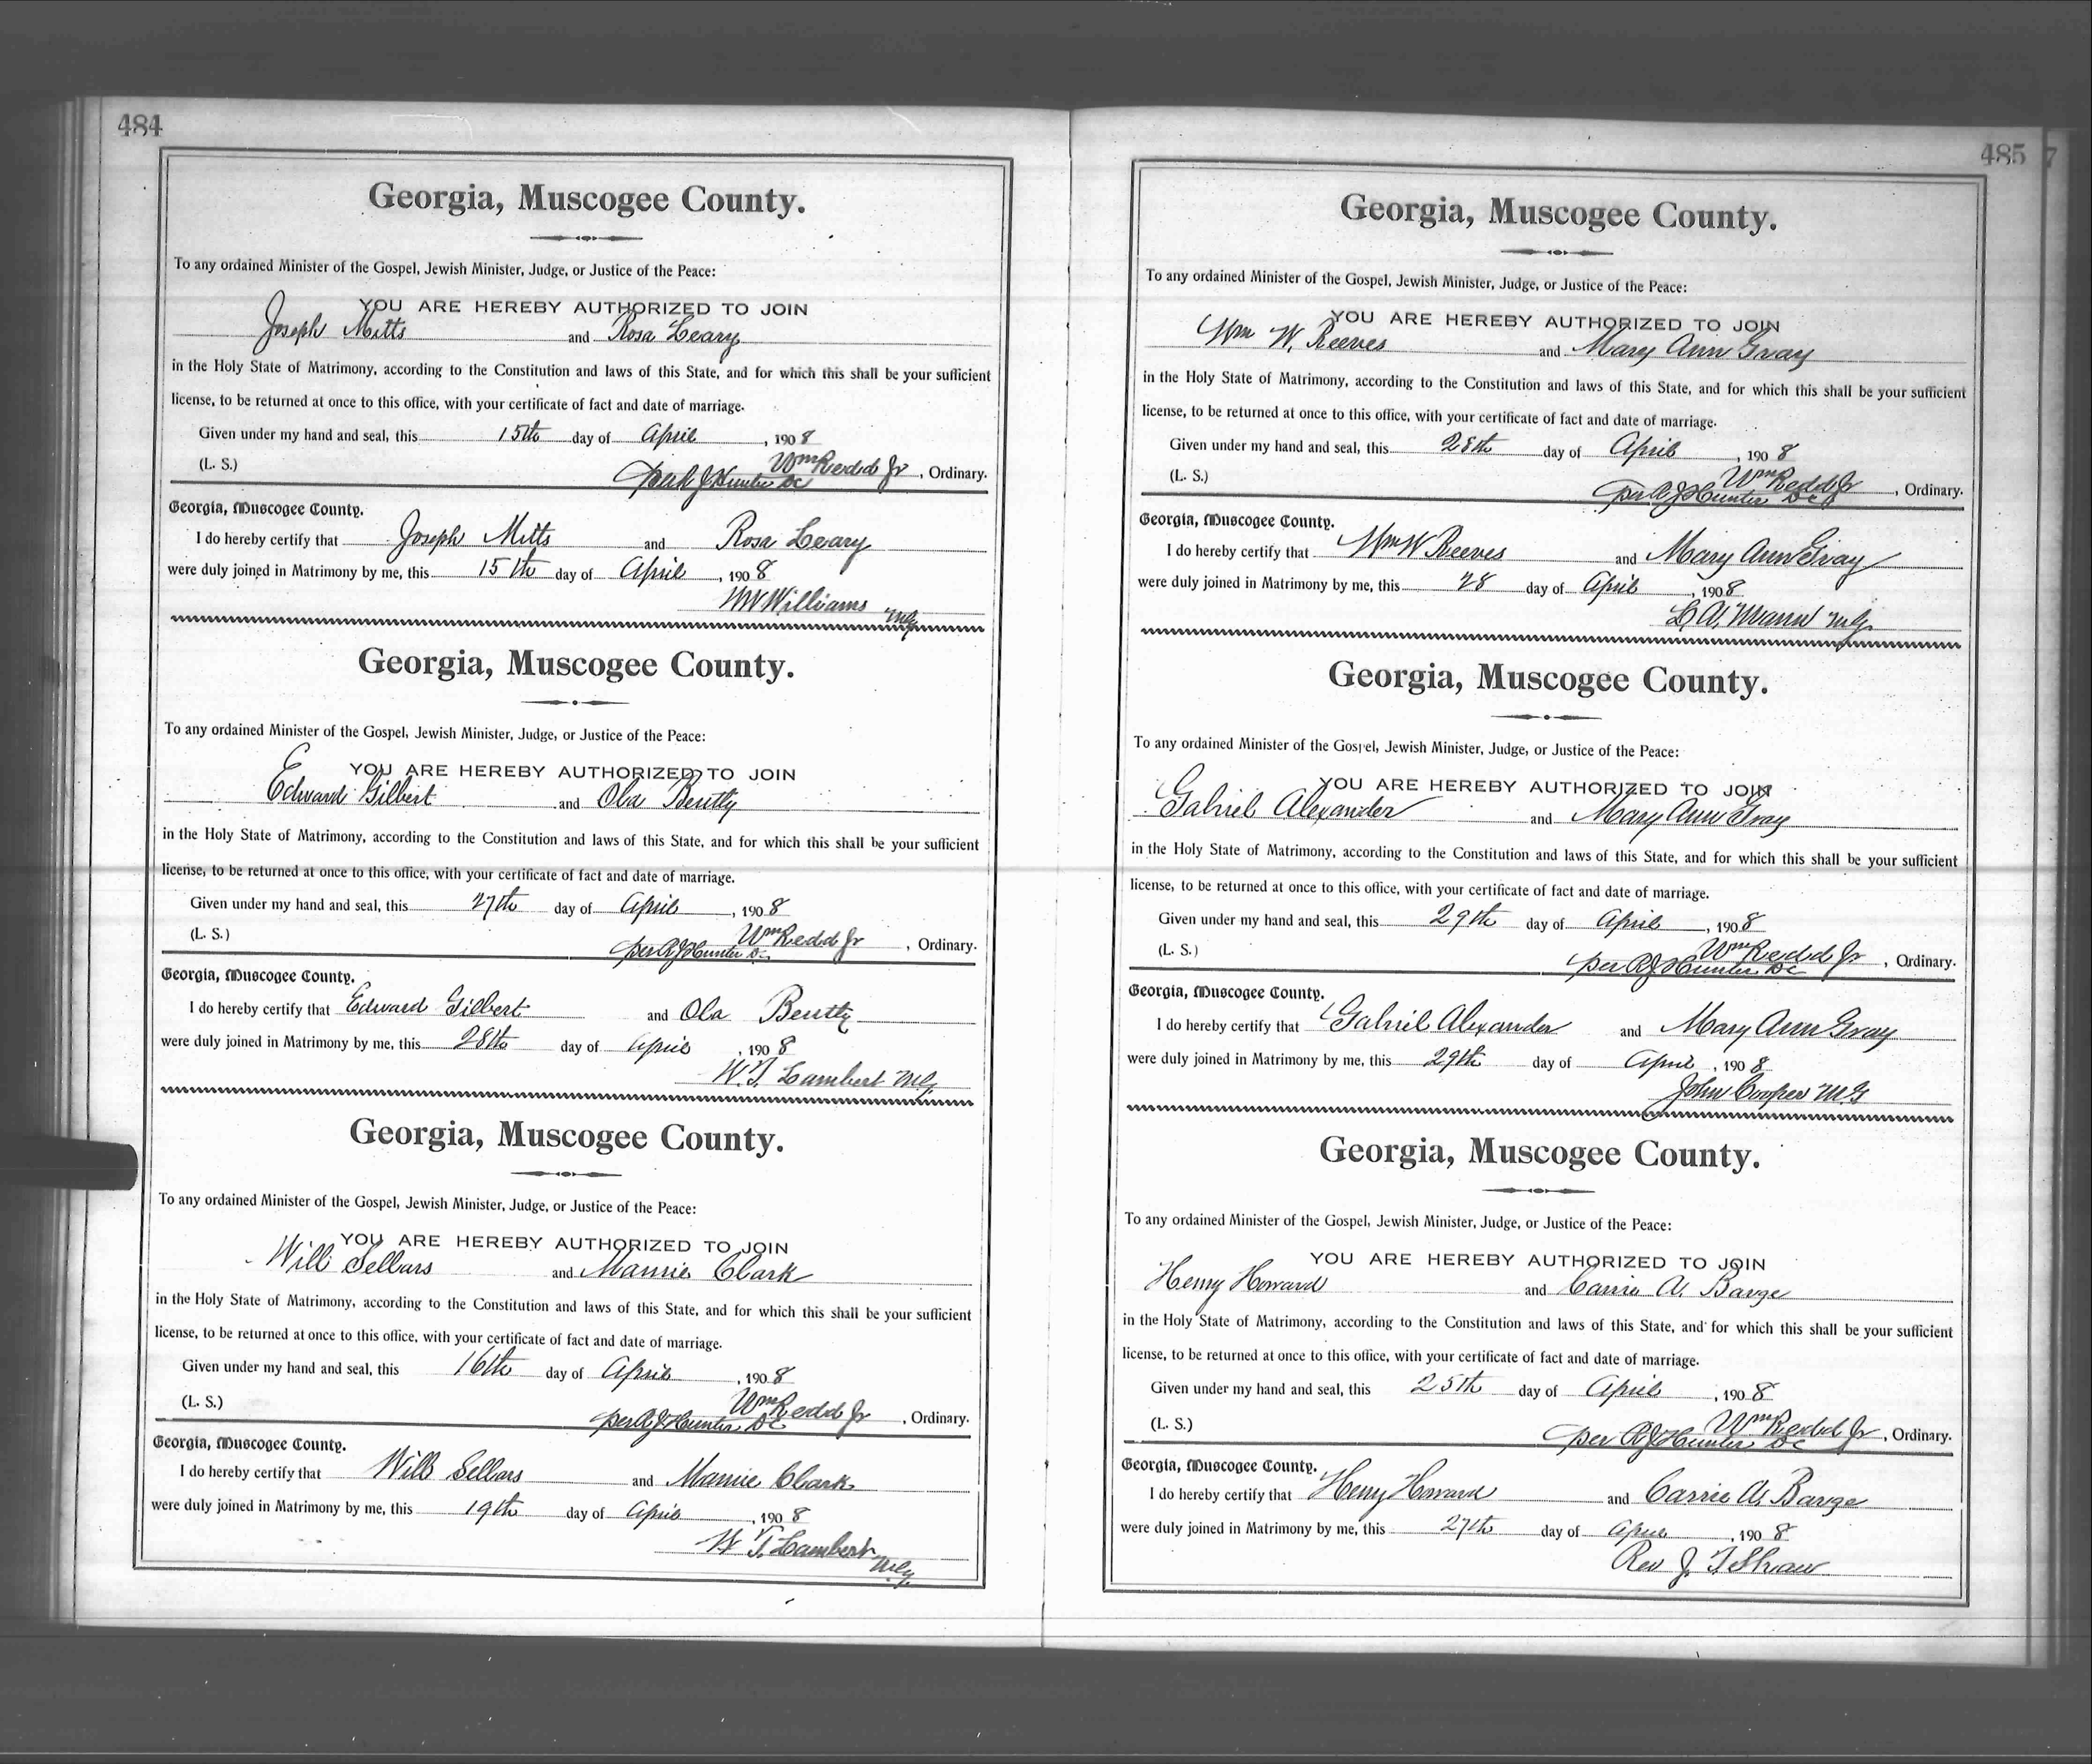 484
Georgia, Muscogee County.
To any ordained Minister of the Gospel, Jewish Minister, Judge, or Justice of the Peace:
YOU ARE HEREBY AUTHORIZED TO JOIN
Joseph Mitts and Rosa Leary
in the Holy State of Matrimony, according to the Constitution and laws of this State, and for which this shall be your sufficient
license, to be returned at once to this office, with your certificate of fact and date of marriage.
Given under my hand and seal, this 15th day of April, 1908
(L. S.) Wm Redd Jr, Ordinary.
per A J Hunter DC
Georgia, Muscogee County.
I do hereby certify that Joseph Mitts and Rosa Leary
were duly joined in Matrimony by me, this 15th day of April, 1908
Williams MG
Georgia, Muscogee County.
To any ordained Minister of the Gospel, Jewish Minister, Judge, or Justice of the Peace:
YOU ARE HEREBY AUTHORIZED TO JOIN
Edward Gilbert and Ola Bently
in the Holy State of Matrimony, according to the Constitution and laws of this State, and for which this shall be your sufficient
license, to be returned at once to this office, with your certificate of fact and date of marriage.
Given under my hand and seal, this 27th day of April, 1908
(L. S.) Wm Redd Jr, Ordinary.
per A J Hunter DC
Georgia, Muscogee County.
I do hereby certify that Edward Gilbert and Ola Bently
were duly joined in Matrimony by me, this 28th day of April, 1908
W. T. Lambert MG
Georgia, Muscogee County.
To any ordained Minister of the Gospel, Jewish Minister, Judge, or Justice of the Peace:
YOU ARE HEREBY AUTHORIZED TO JOIN
Will Sellars and Mamie Clark
in the Holy State of Matrimony, according to the Constitution and laws of this State, and for which this shall be your sufficient
license, to be returned at once to this office, with your certificate of fact and date of marriage.
Given under my hand and seal, this 16th day of April, 1908
(L. S.) Wm Redd Jr, Ordinary.
per A J Hunter DC
Georgia, Muscogee County.
I do hereby certify that Will Sellars and Mamie Clark
were duly joined in Matrimony by me, this 19th day of April, 1908
W. T. Lambert MG
485 7
Georgia, Muscogee County.
To any ordained Minister of the Gospel, Jewish Minister, Judge, or Justice of the Peace:
YOU ARE HEREBY AUTHORIZED TO JOIN
Wm W. Reeves and Mary Ann Gray
in the Holy State of Matrimony, according to the Constitution and laws of this State, and for which this shall be your sufficient
license, to be returned at once to this office, with your certificate of fact and date of marriage.
Given under my hand and seal, this 28th day of April, 1908
(L. S.) Wm Redd Jr, Ordinary.
per A J Hunter DC
Georgia, Muscogee County.
I do hereby certify that Wm W Reeves and Mary Ann Gray
were duly joined in Matrimony by me, this 28 day of April, 1908
Mann MG
Georgia, Muscogee County.
To any ordained Minister of the Gospel, Jewish Minister, Judge, or Justice of the Peace:
YOU ARE HEREBY AUTHORIZED TO JOIN
Gabriel Alexander and Mary Ann Gray
in the Holy State of Matrimony, according to the Constitution and laws of this State, and for which this shall be your sufficient
license, to be returned at once to this office, with your certificate of fact and date of marriage.
Given under my hand and seal, this 29th day of April, 1908
(L. S.) Wm Redd Jr, Ordinary.
per A J Hunter DC
Georgia, Muscogee County.
I do hereby certify that Gabriel Alexander and Mary Ann Gray
were duly joined in Matrimony by me, this 29th day of April, 1908
John Cooper MG
Georgia, Muscogee County.
To any ordained Minister of the Gospel, Jewish Minister, Judge, or Justice of the Peace:
YOU ARE HEREBY AUTHORIZED TO JOIN
Henry Howard and Carrie A. Barge
in the Holy State of Matrimony, according to the Constitution and laws of this State, and for which this shall be your sufficient
license, to be returned at once to this office, with your certificate of fact and date of marriage.
Given under my hand and seal, this 25th day of April, 1908
(L. S.) Wm Redd Jr, Ordinary.
per A J Hunter DC
Georgia, Muscogee County.
I do hereby certify that Henry Howard and Carrie A. Barge
were duly joined in Matrimony by me, this 27th day of April, 1908
Rev J. T. Shaw